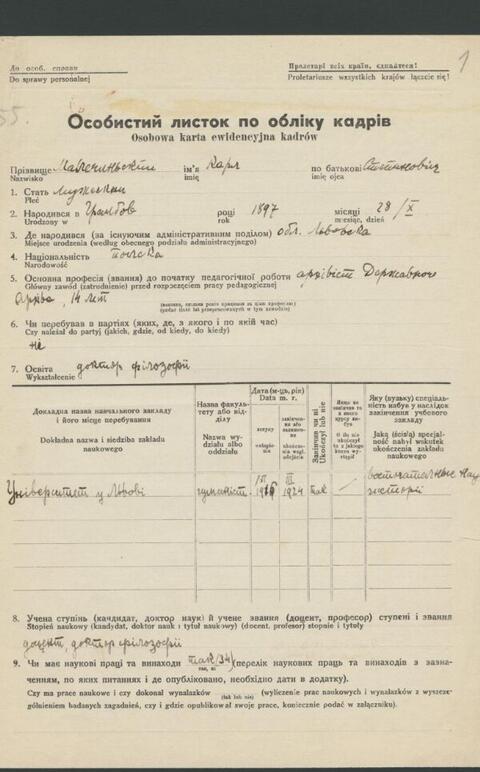 До особ. справи
Do sprawy personalnej
Пролетарі всіх країн, єднайтеся!
Proletariusze wszystkich krajów łączcie się!
1
55.
Особистий листок по обліку кадрів
Osobowa karta ewidencyjna kadrów
Прізвище ім'я Карл по батькові
Nazwisko imię imię ojca
1. Стать
Płeć
2. Народився в році 1897 місяці 28/X
Urodzony w rok miesiąc, dzień
3. Де народився (за існуючим адміністративним поділом) обл. Львовска
Miejsce urodzenia (według obecnego podziału administracyjnego)
4. Національність польска
Narodowość
5. Основна професія (звання) до початку педагогічної роботи архівіст Державного
Główny zawód (zatrudnienie) przed rozpoczęciem pracy pedagogicznej
Архіва, 14 лет
6. Чи перебував в партіях (яких, де, з якого і по якій час)
Czy należał do partyj (jakich, gdzie, od kiedy, do kiedy)
ні
7. Освіта доктор філозофії
Wykształcenie
Докладна назва навчального закладу і його місце перебування
Dokładna nazwa i siedziba zakładu naukowego
Назва факультету або відділу
Nazwa wydziału albo oddziału
Дата (м-ць, рік)
Data m. r.
вступу
закінчення або залишення
Закінчив чи ні
Ukończył lub nie
Яку (вузьку) спеціальність набув у наслідок закінчення учбового закладу
Jaką (ścisłą) specjalność nabył wskutek ukończenia zakładu naukowego
Університет у Львові гуманіст. 1924 так —
історії
8. Учена ступінь (кандидат, доктор наук) й учене звання (доцент, професор) ступені і звання
Stopień naukowy (kandydat, doktor nauk i tytuł naukowy) (docent, profesor) stopnie i tytuły
доцент, доктор філозофії
9. Чи має наукові праці та винаходи так (34) (перелік наукових праць та винаходів з зазначенням, по яких питаннях і де опубліковано, необхідно дати в додатку).
так, ні
Czy ma prace naukowe i czy dokonał wynalazków (tak lub nie) (wyliczenie prac naukowych i wynalazków z wyszczególnieniem badanych zagadnień, czy i gdzie opublikował swoje prace, koniecznie podać w załączniku).